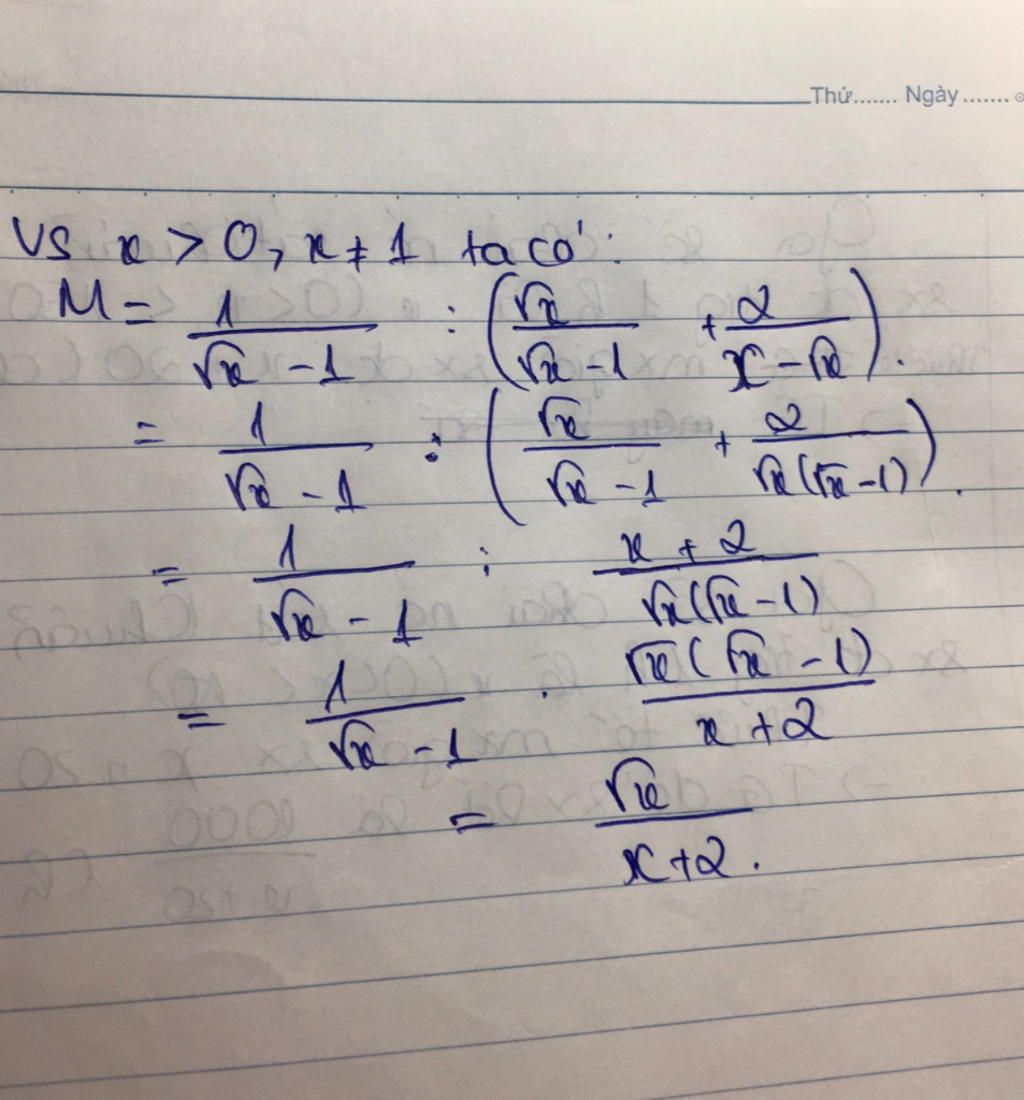 Thứ....... Ngày.......
Vs x > 0, x ≠ 1 ta có:
M = 1/(√x - 1) : (√x/(√x - 1) + 2/(x - √x)).
= 1/(√x - 1) : (√x/(√x - 1) + 2/(√x(√x - 1))).
= 1/(√x - 1) : (x + 2)/(√x(√x - 1))
= 1/(√x - 1) . √x(√x - 1)/(x + 2)
= √x/(x + 2).